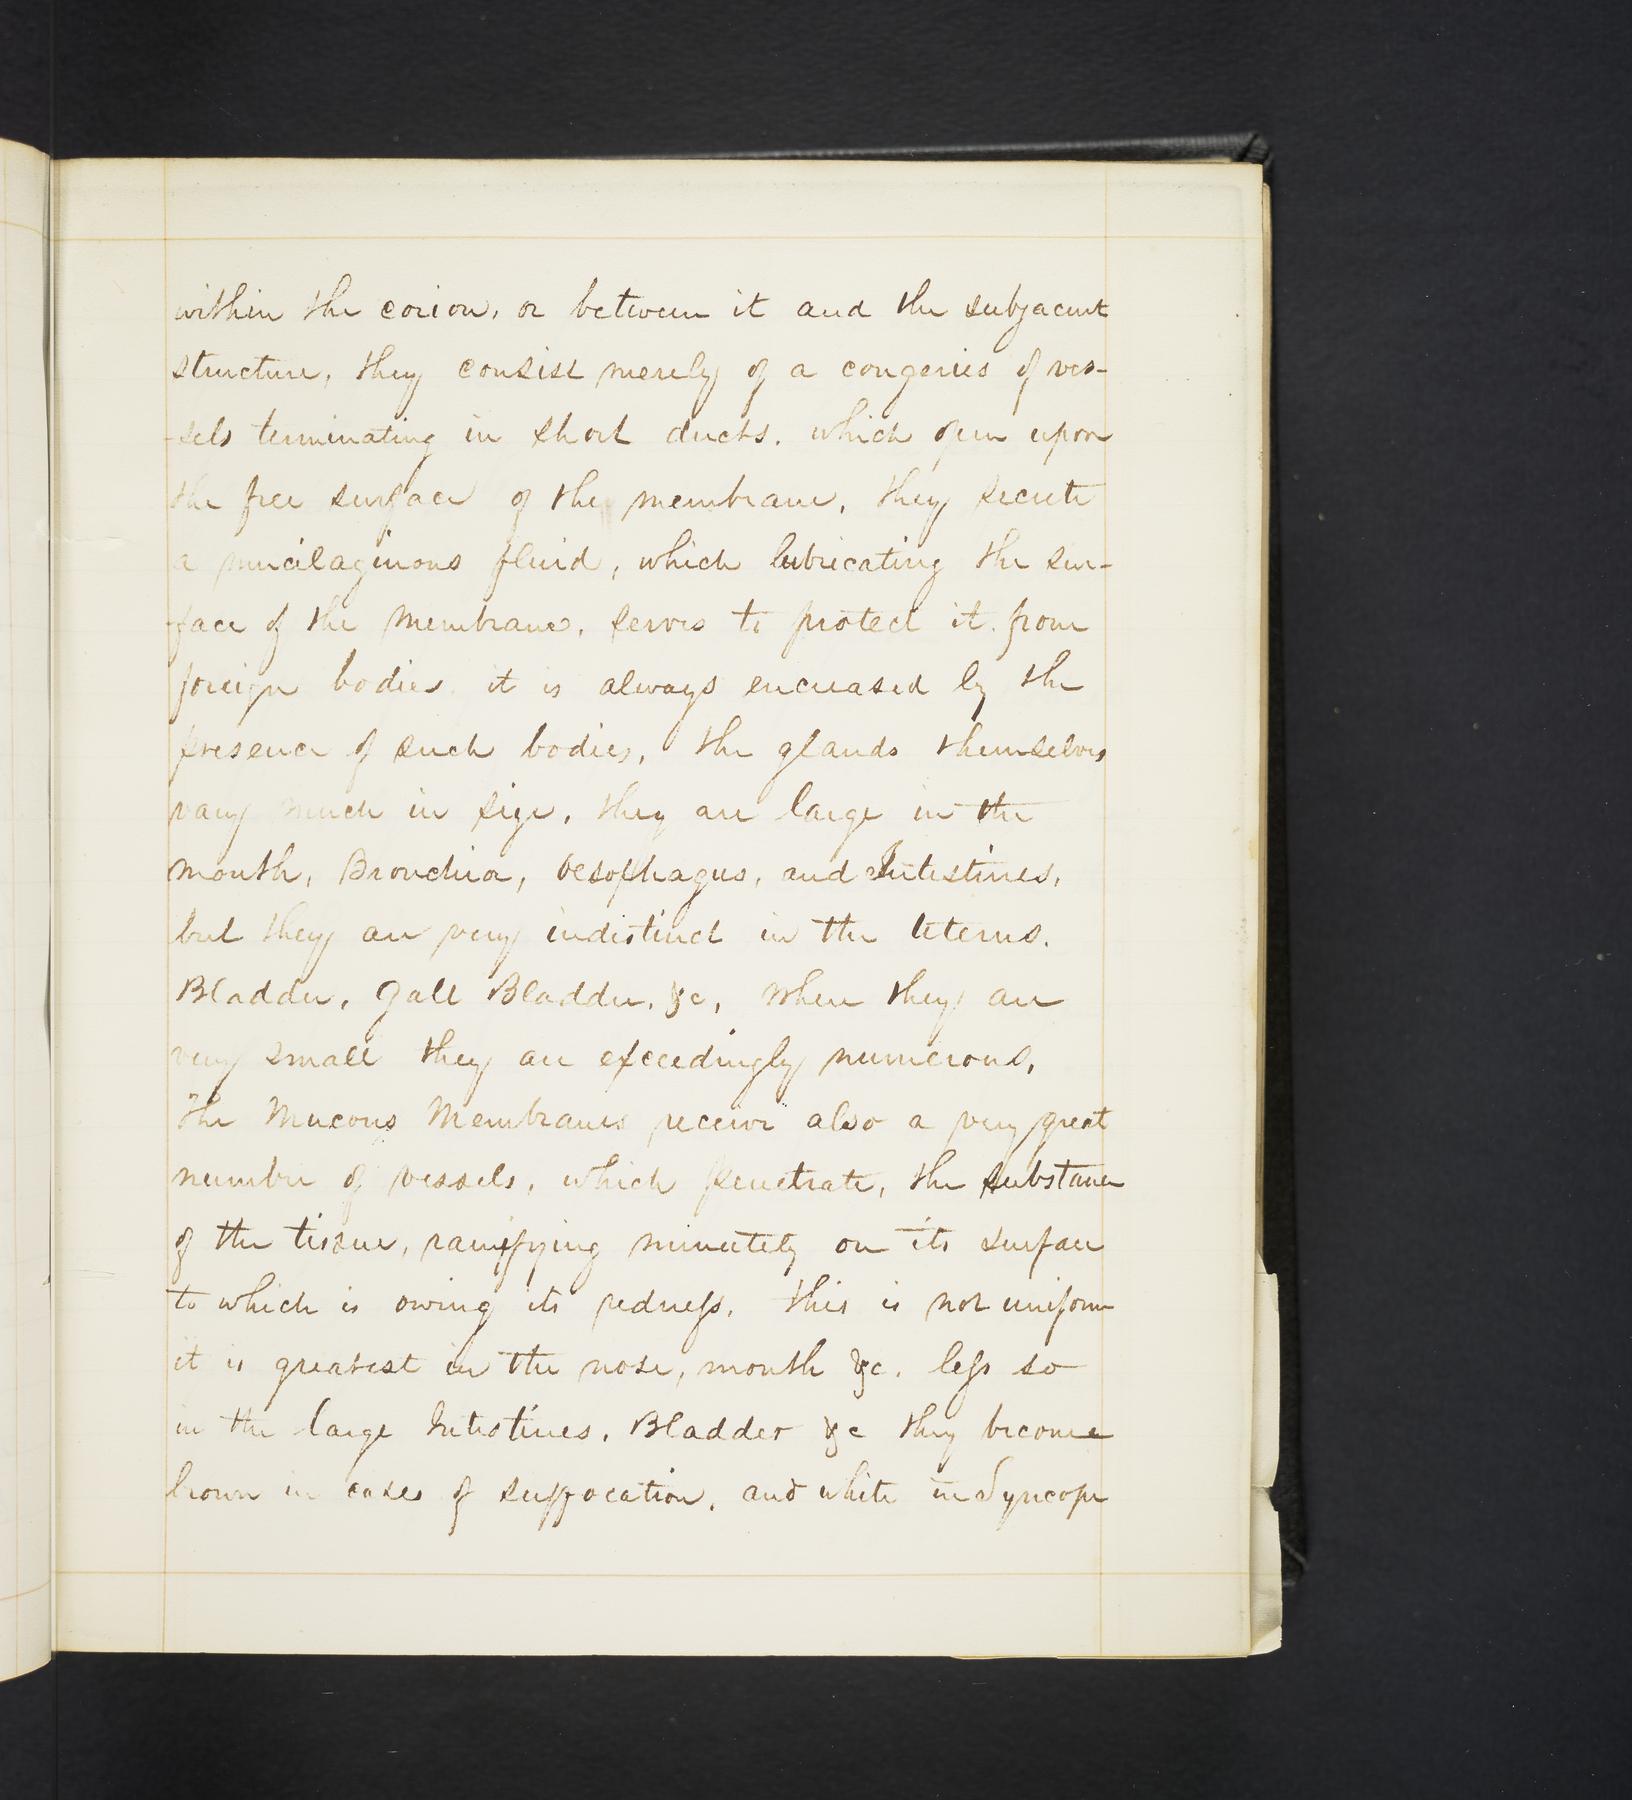 within the corion, or between it and the subjacent
structure, they consist merely of a congeries of ves-
-sels terminating in short ducts. which open upon
the free surface of the membrane, they secrete
a mucilaginous fluid, which lubricating the sur-
-face of the membrane, serves to protect it from
foreign bodies it is always encreased by the
presence of such bodies, the glands themselves
vary much in size, they are large in the
mouth, Bronchia, Oesophagus, and Intestines,
but they are very indistinct in the Uterus.
Bladder, Gall Bladder, &c, when they are
very small they are exceedingly numerous,
The Mucous Membranes receive also a very great
number of vessels, which penetrate, the substance
of the tissue, ramifying minutely on its surface
to which is owing its redness. this is not uniform
it is greatest in the nose, mouth &c. less so
in the large Intestines, Bladder &c they become
brown in cases of suffocation, and white in Syncope